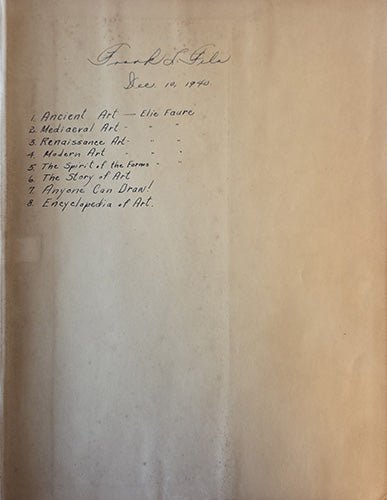 Frank L. Fels
Dec. 10, 1940.
1. Ancient Art — Elie Faure
2. Mediaeval Art - " "
3. Renaissance Art - " "
4. Modern Art " "
5. The Spirit of the Forms - " "
6. The Story of Art
7. Anyone Can Draw!
8. Encyclopedia of Art.